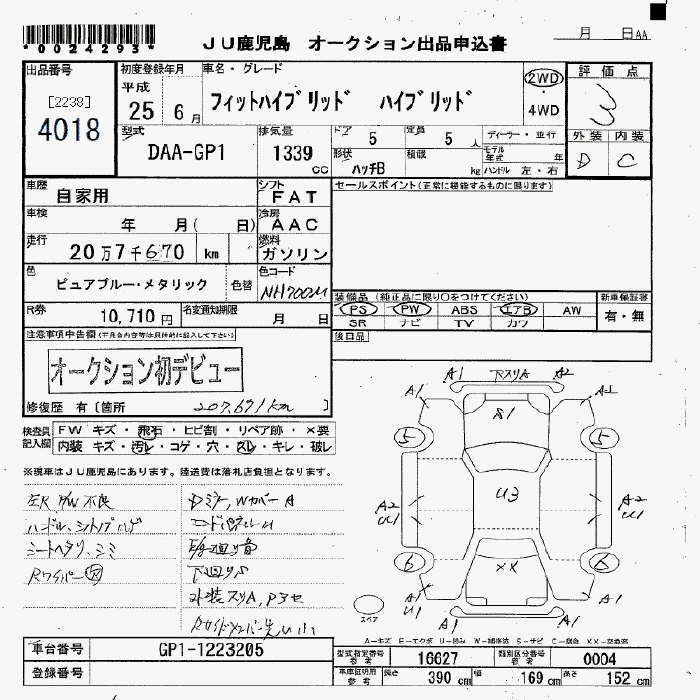 *0024293*
JU鹿児島 オークション出品申込書
月 日AA
出品番号
[2238]
4018
初度登録年月
平成
25 6月
車名・グレード
フィットハイブリッド ハイブリッド
2WD
・
4WD
評価点
3
外装 内装
D C
型式
DAA-GP1
排気量
1339
cc
ドア
5
定員
5人
ディーラー・並行
形状
ハッチB
積載
kg
モデル年式 年
ハンドル 左・右
車歴
自家用
シフト
FAT
セールスポイント(正常に機能するものに限ります)
車検
年 月( 日)
冷房
AAC
走行
20万7千670 km
燃料
ガソリン
色
ピュアブルー・メタリック
色替
色コード
NH700M
装備品 (純正品に限り○をつけてください)
新車保証書
PS PW ABS エアB AW
有・無
SR ナビ TV カワ
R券
10,710円
名変通知期限
月 日
後日品
注意事項申告欄(不具合内容等は具体的に記入して下さい)
オークション初デビュー
修復歴 有〔箇所
207,671km
〕
検査員記入欄
FW キズ・飛石・ヒビ割・リペア跡・×要
内装 キズ・汚レ・コゲ・穴・スレ・キレ・破レ
※現車はJU鹿児島にあります。陸送費は落札店負担となります。
P/W不良
シートヘタリ、シミ
Rワイパー
Dミラー,WカバーA
下回りS
外装スリA,Pアセ
A1 A1 下スリA A2 A1
S1
5 5
A2
U1
U3
A2
U1
6 6
××
A1
U1
A1 A1
スペア
A-キズ E-エクボ U-凹み W-補修跡 S-サビ C-腐食 XX-交換済
車台番号
GP1-1223205
登録番号
型式指定番号 参考
16627
類別区分番号 参考
0004
車庫証明用 参考
長さ 390 cm
幅 169 cm
高さ 152 cm